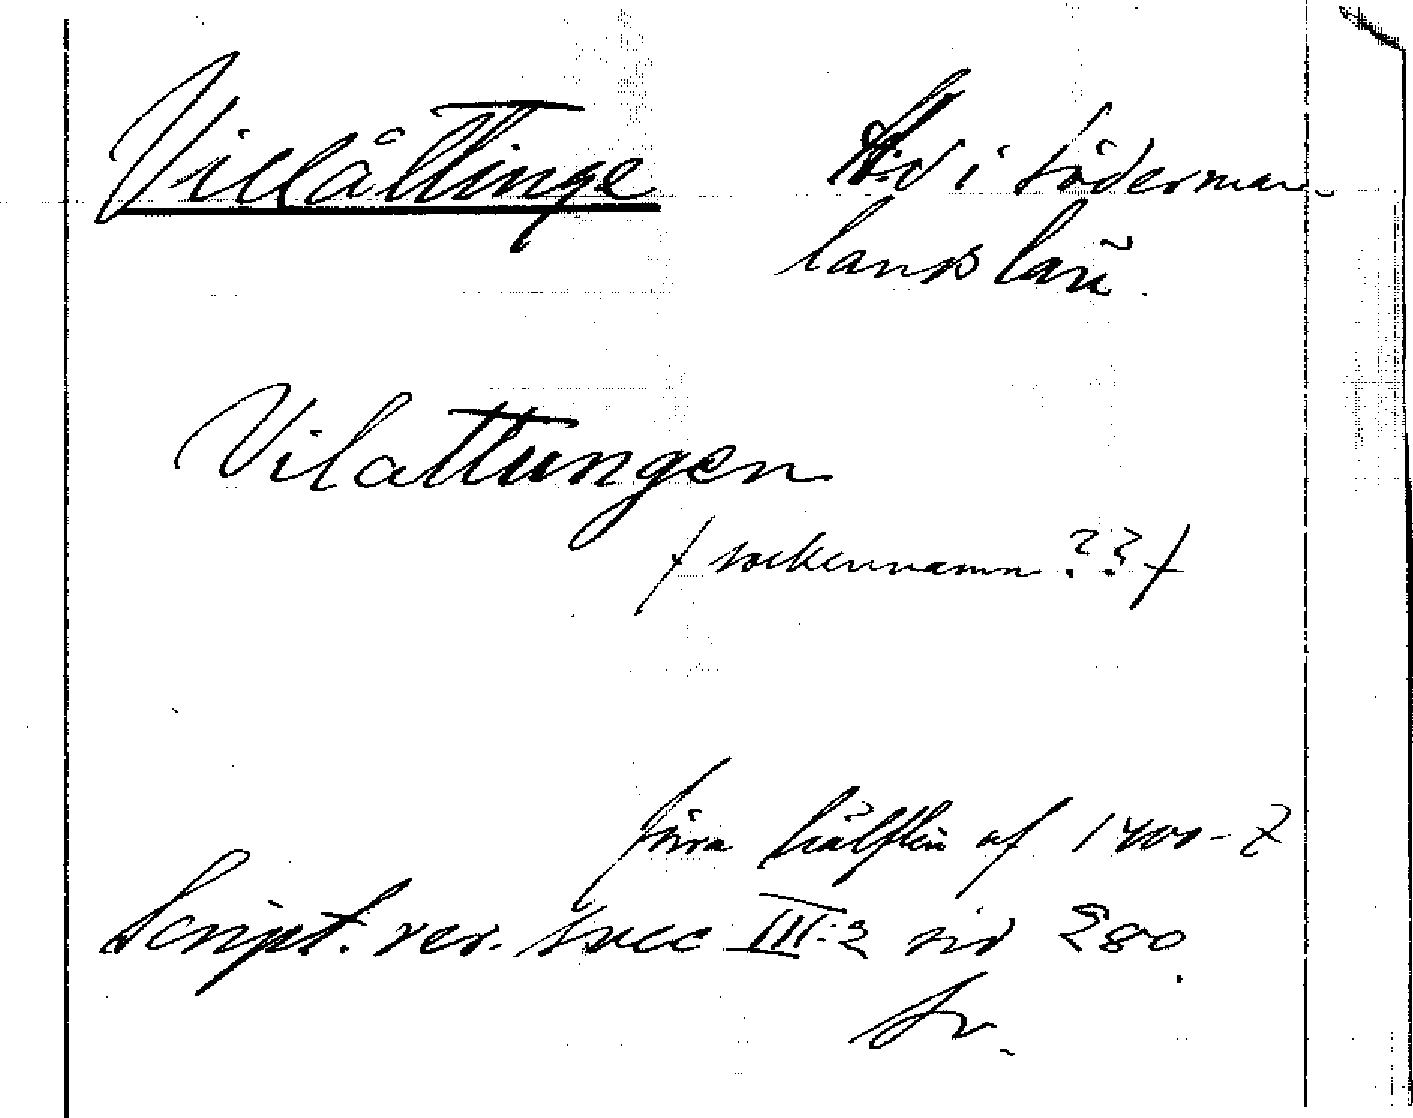 Villåttinge
Hd i Söderman-
lands län.
Vilattungen
(sockennamn ??)
förra hälften af 1400-t
Script. rer. svec III:2 sid 280.
Lat.